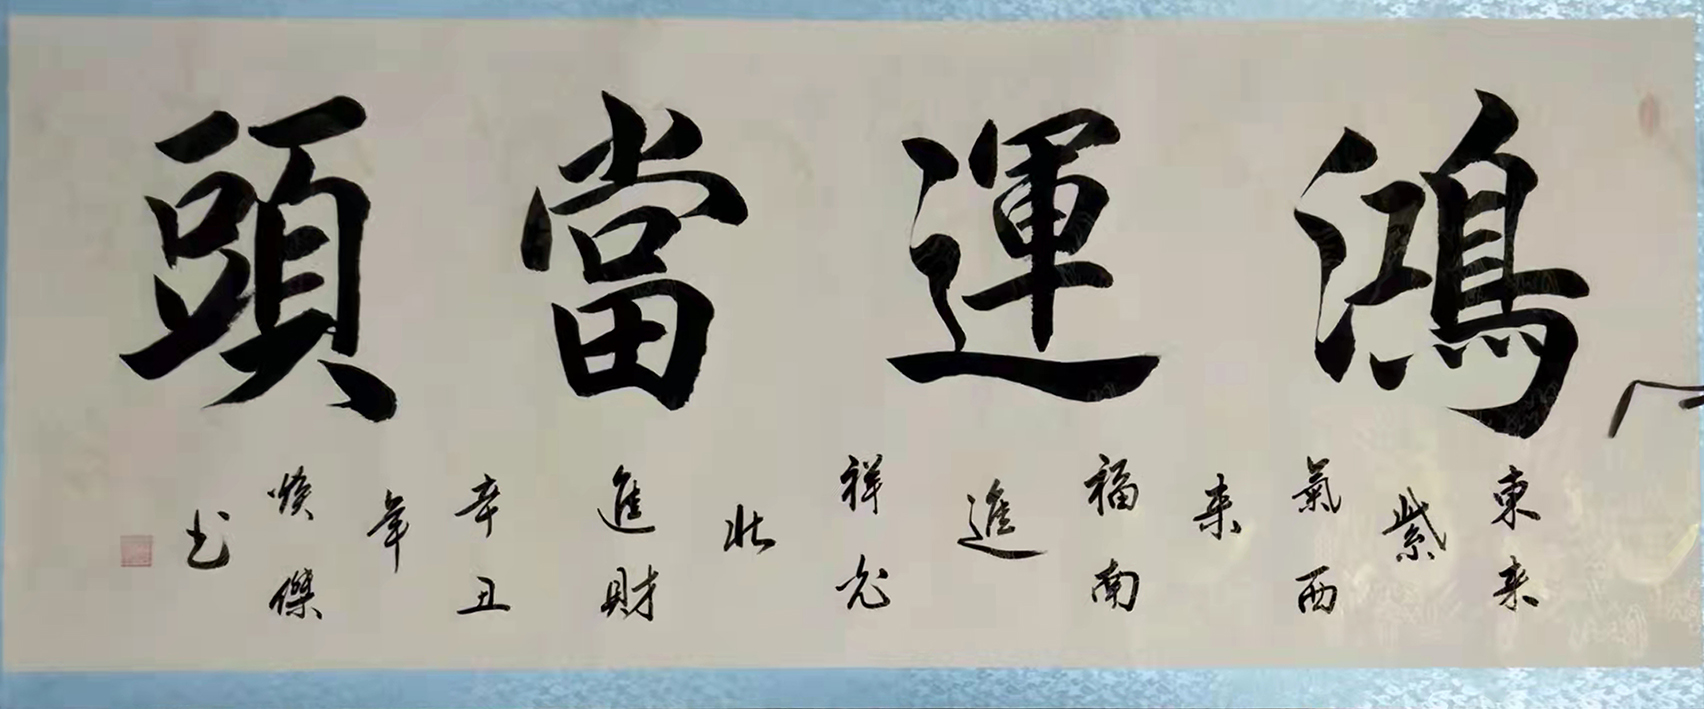 鴻運當頭
東来
紫
氣西
来
福南
進
祥光
北
進財
辛丑
年
煥傑
书